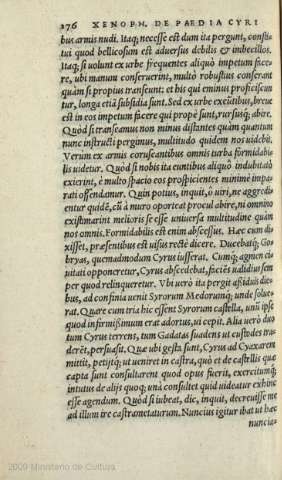 276 XENOPH. DE PAEDIA CYRI
bus armis nudi. Itaq; necesse est dum ita pergunt, consti-
tui quod bellicosum est aduersus debilis & imbecillos.
Itaq; si uolunt ex urbe frequentes aliquò impetum face-
re, ubi manum conseruerint, multò robustius conserant
quàm si propius transeunt: et his qui eminus proficiscun
tur, longa etiã subsidia sunt. Sed ex urbe exeũtibus, breue
est in eos impetum facere qui propè sunt, rursusq; abire.
Quòd si transeamus non minus distantes quàm quantum
nunc instructi pergimus, multitudo quidem nos uidebit.
Verum ex armis coruscantibus omnis turba formidabi-
lis uidetur. Quòd si nobis ita euntibus aliquò undiubiuis
exierint, è multo spacio eos prospicientes minimè impa-
rati offendamur. Quin potius, inquit, ò uiri, ne aggredi-
entur quidẽ, cũ à muro oporteat procul abire, ni omnino
existimarint melioris se esse uniuersa multitudine quàm
nos omnis. Formidabilis est enim abscessus. Haec cum di-
xisset, praesentibus est uisus rectè dicere. Ducebatq; Go-
bryas, quemadmodum Cyrus iusserat. Cumq; agmen ci-
uitati opponeretur, Cyrus abscedebat, faciẽs ualidius sem
per quod relinqueretur. Vbi uerò ita pergit aßiduis die-
bus, ad confinia uenit Syrorum Medorumq; unde solue-
rat. Quare cum tria hic essent Syrorum castella, unũ ipse
quod infirmißimum erat adortus, ui cepit. Alia uerò duo
tum Cyrus terrens, tum Gadatas suadens ut custodes tra-
derẽt, persuasit. Quae ubi gesta sunt, Cyrus ad Cyaxarem
mittit, petijtq; ut ueniret in castra, quò et de castellis quae
capta sunt consultarent quod opus fuerit, exercitumq;
intuitus de alijs quoq; unà consultet quid uideatur exhinc
esse agendum. Quòd si iubeat, dic, inquit, decreuisse me
ad illum ire castrametaturum. Nuncius igitur ibat ut haec
nuncia-
2009 Ministerio de Cultura